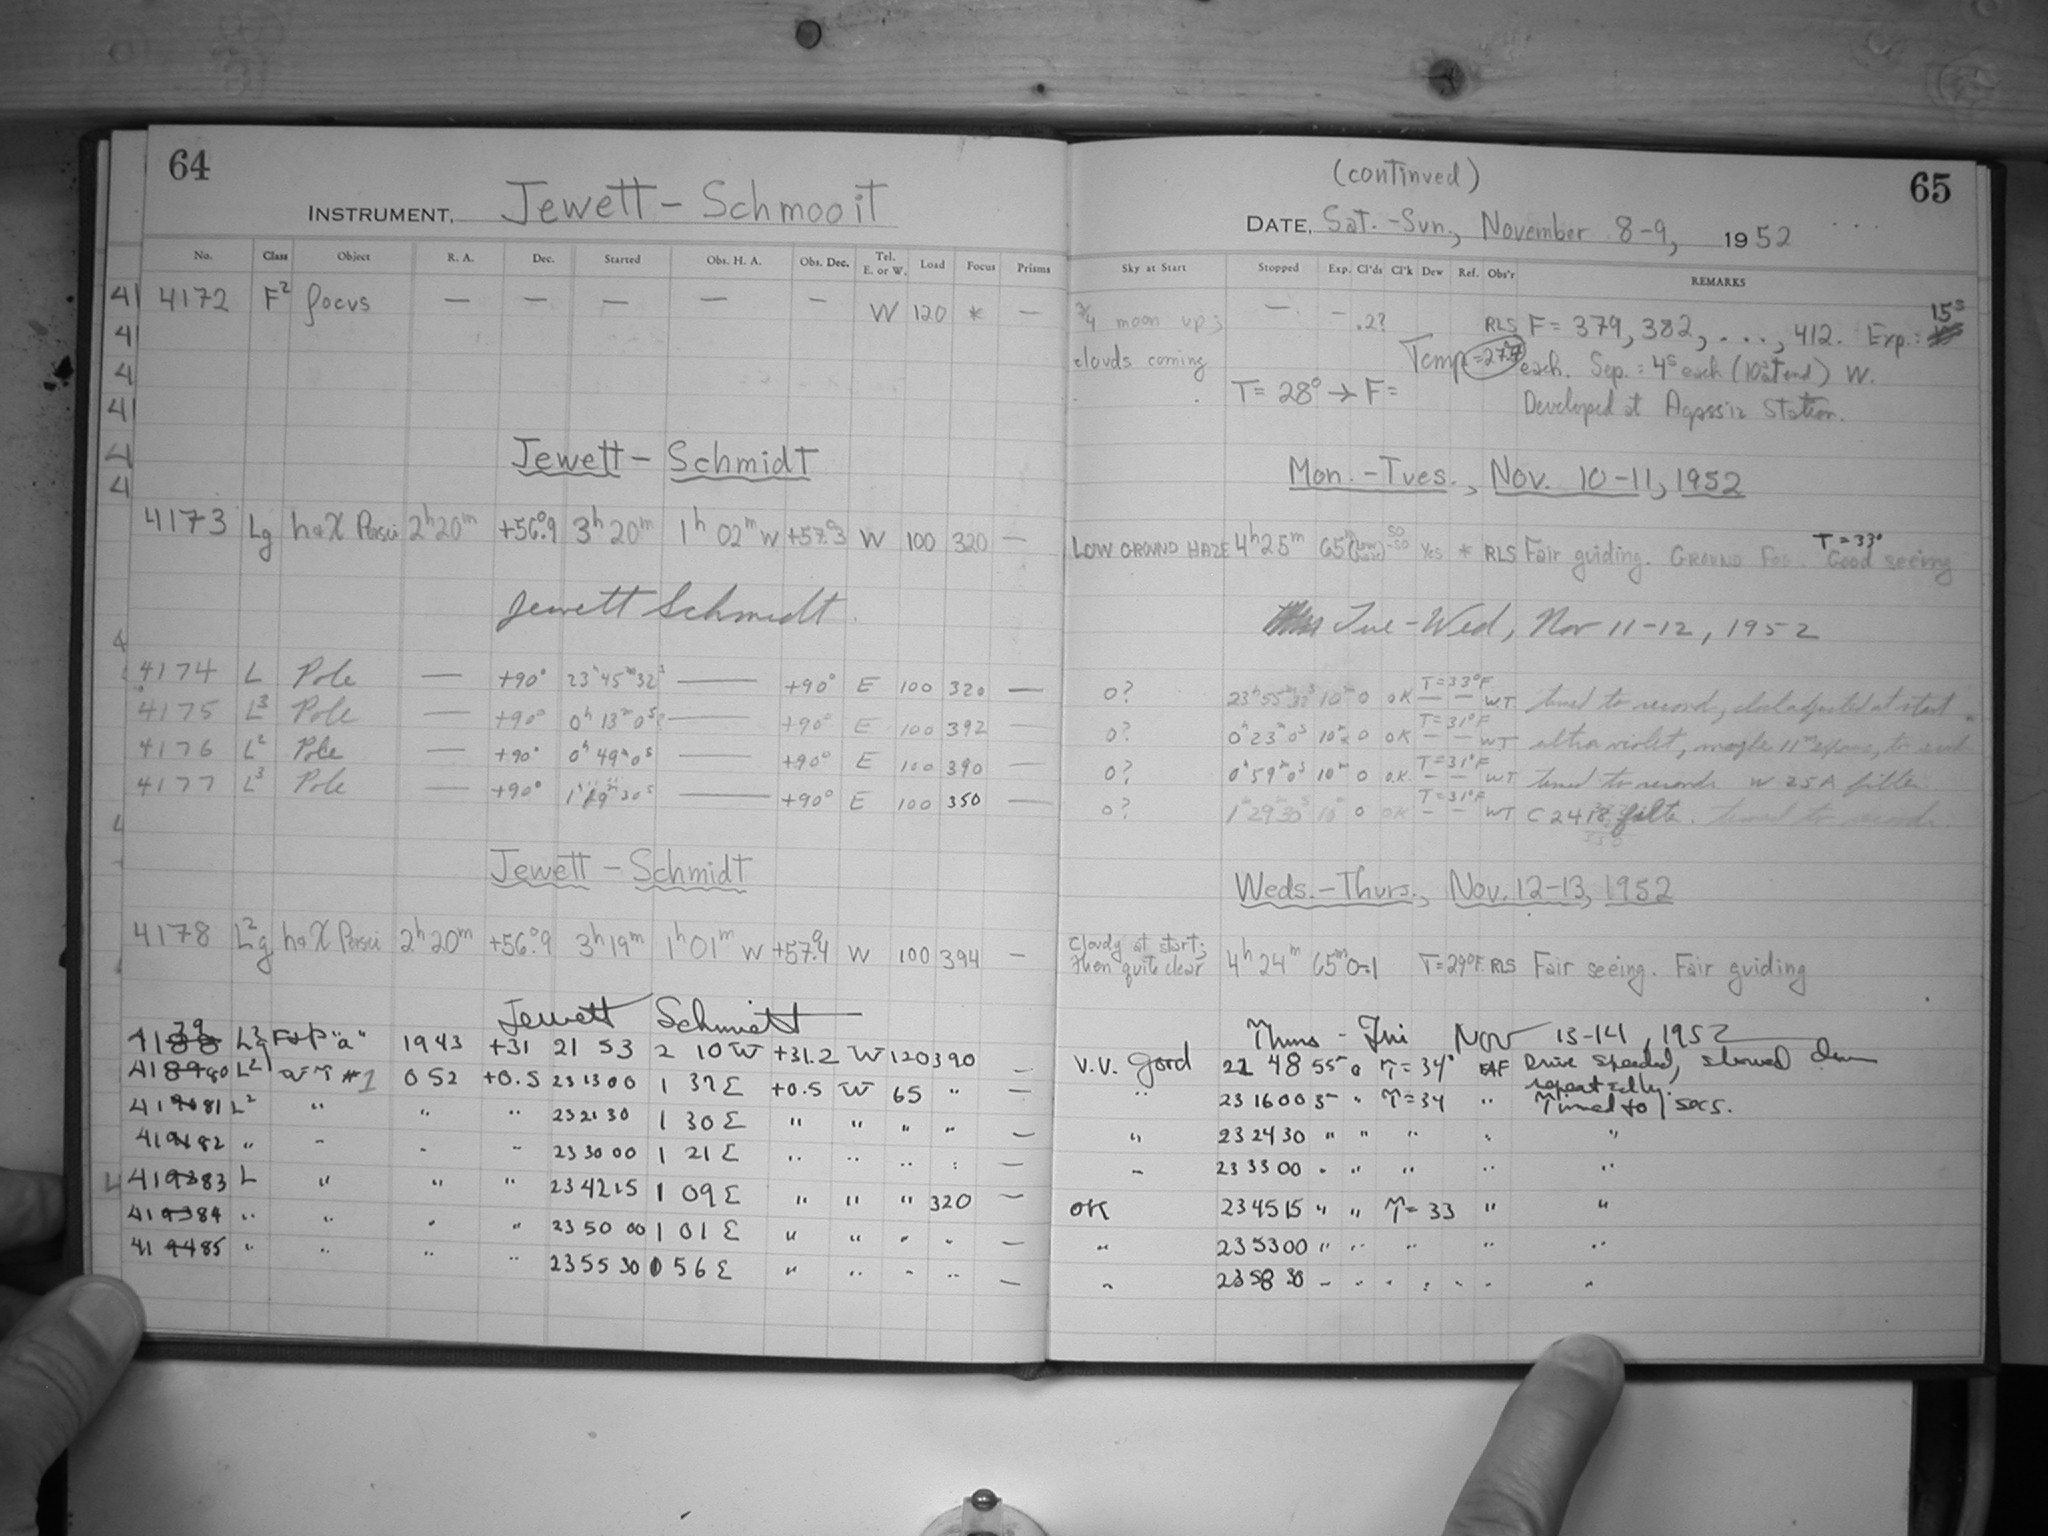 64
INSTRUMENT, Jewett - Schmooit
No. Class Object R. A. Dec. Started Obs. H. A. Obs. Dec. Tel. E. or W. Load Focus Prisms
4172 F² focus — — — — — W 120 * —
Jewett - Schmidt
4173 Lg h+χ Persei 2ʰ20ᵐ +56°.9 3ʰ20ᵐ 1ʰ 02ᵐ W +57°.3 W 100 320 —
Jewett Schmidt.
4174 L Pole — +90° 23ʰ45ᵐ32ˢ — +90° E 100 320 —
4175 L³ Pole — +90° 0ʰ 13ᵐ 0ˢ? — +90° E 100 392 —
4176 L² Pole — +90° 0ʰ 49ᵐ 0ˢ — +90° E 100 390 —
4177 L³ Pole — +90° 1ʰ 19ᵐ 30ˢ — +90° E 100 350 —
Jewett - Schmidt
4178 L²g h+χ Persei 2ʰ20ᵐ +56°.9 3ʰ19ᵐ 1ʰ01ᵐ W +57°.4 W 100 394 —
Jewett Schmidt
"a" 19 43 +31 21 53 2 10 W +31.2 W 120 390 —
L² #1 0 52 +0.5 23 13 00 1 37 E +0.5 W 65 " —
L² " " " 23 21 30 1 30 E " " " " —
" " " " 23 30 00 1 21 E " " " " —
L " " " 23 42 15 1 09 E " " " 320 —
" " " " 23 50 00 1 01 E " " " " —
" " " " 23 55 30 0 56 E " " " " —
(continued)
65
DATE, Sat. - Sun., November 8-9, 1952
Sky at Start Stopped Exp. Cl'ds Cl'k Dew Ref. Obs'r REMARKS
3/4 moon up; — — .2? RLS F = 379, 382, . . . , 412. Exp.: 15ˢ
clouds coming Temp = each. Sep. = 4ˢ each (10ˢ at end) W.
T = 28° → F = Developed at Agassiz Station.
Mon. - Tues., Nov. 10-11, 1952
LOW GROUND HAZE 4ʰ25ᵐ 65ᵐ (Low haze) SO -SO Yes * RLS Fair guiding. GROUND FOG. T = 33° Good seeing
Tue - Wed, Nov 11-12, 1952
0? 23ʰ55ᵐ32ˢ 10ᵐ 0 OK T=33°F — — WT timed to second, clock adjusted at start
0? 0ʰ23ᵐ0ˢ 10ᵐ 0 OK T=31°F — — WT ultra violet,
0? 0ʰ59ᵐ0ˢ 10ᵐ 0 O.K. T=31°F — — WT timed to seconds W 25A filter
0? 1ʰ29ᵐ30ˢ 10ᵐ 0 OK T=31°F — — WT C 2418 filter. timed to seconds.
Weds. - Thurs., Nov. 12-13, 1952
Cloudy at start; then quite clear 4ʰ24ᵐ 65ᵐ 0-1 T=29°F. RLS Fair seeing. Fair guiding
Thurs - Fri Nov 13-14, 1952
V.V. Good 22 48 55 0 T = 34° EAF Drive speeded, slowed down repeatedly.
" 23 16 00 3 " T = 34 " Timed to 1 secs.
" 23 24 30 " " " " "
" 23 33 00 " " " " "
OK 23 45 15 " " T = 33 " "
" 23 53 00 " " " " "
" 23 58 30 " " " " "